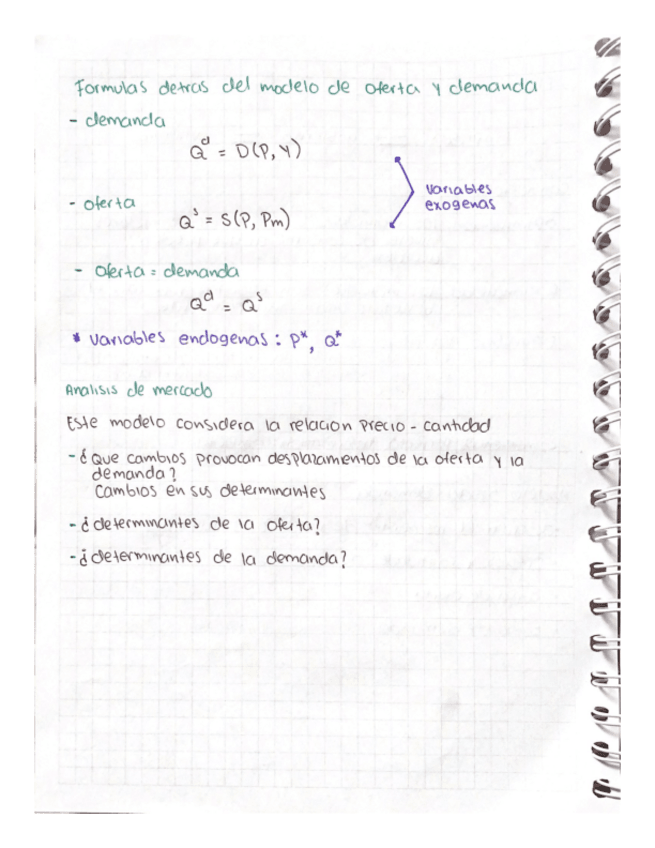 Formulas detras del modelo de oferta y demanda
- demanda
Q^d = D(P, Y)
variables
exogenas
- oferta
Q^s = S(P, Pm)
- Oferta = demanda
Q^d = Q^s
* variables endogenas: P*, Q*
Analisis de mercado
Este modelo considera la relacion precio - cantidad
- ¿Que cambios provocan desplazamientos de la oferta y la
demanda?
Cambios en sus determinantes
- ¿determinantes de la oferta?
- ¿determinantes de la demanda?